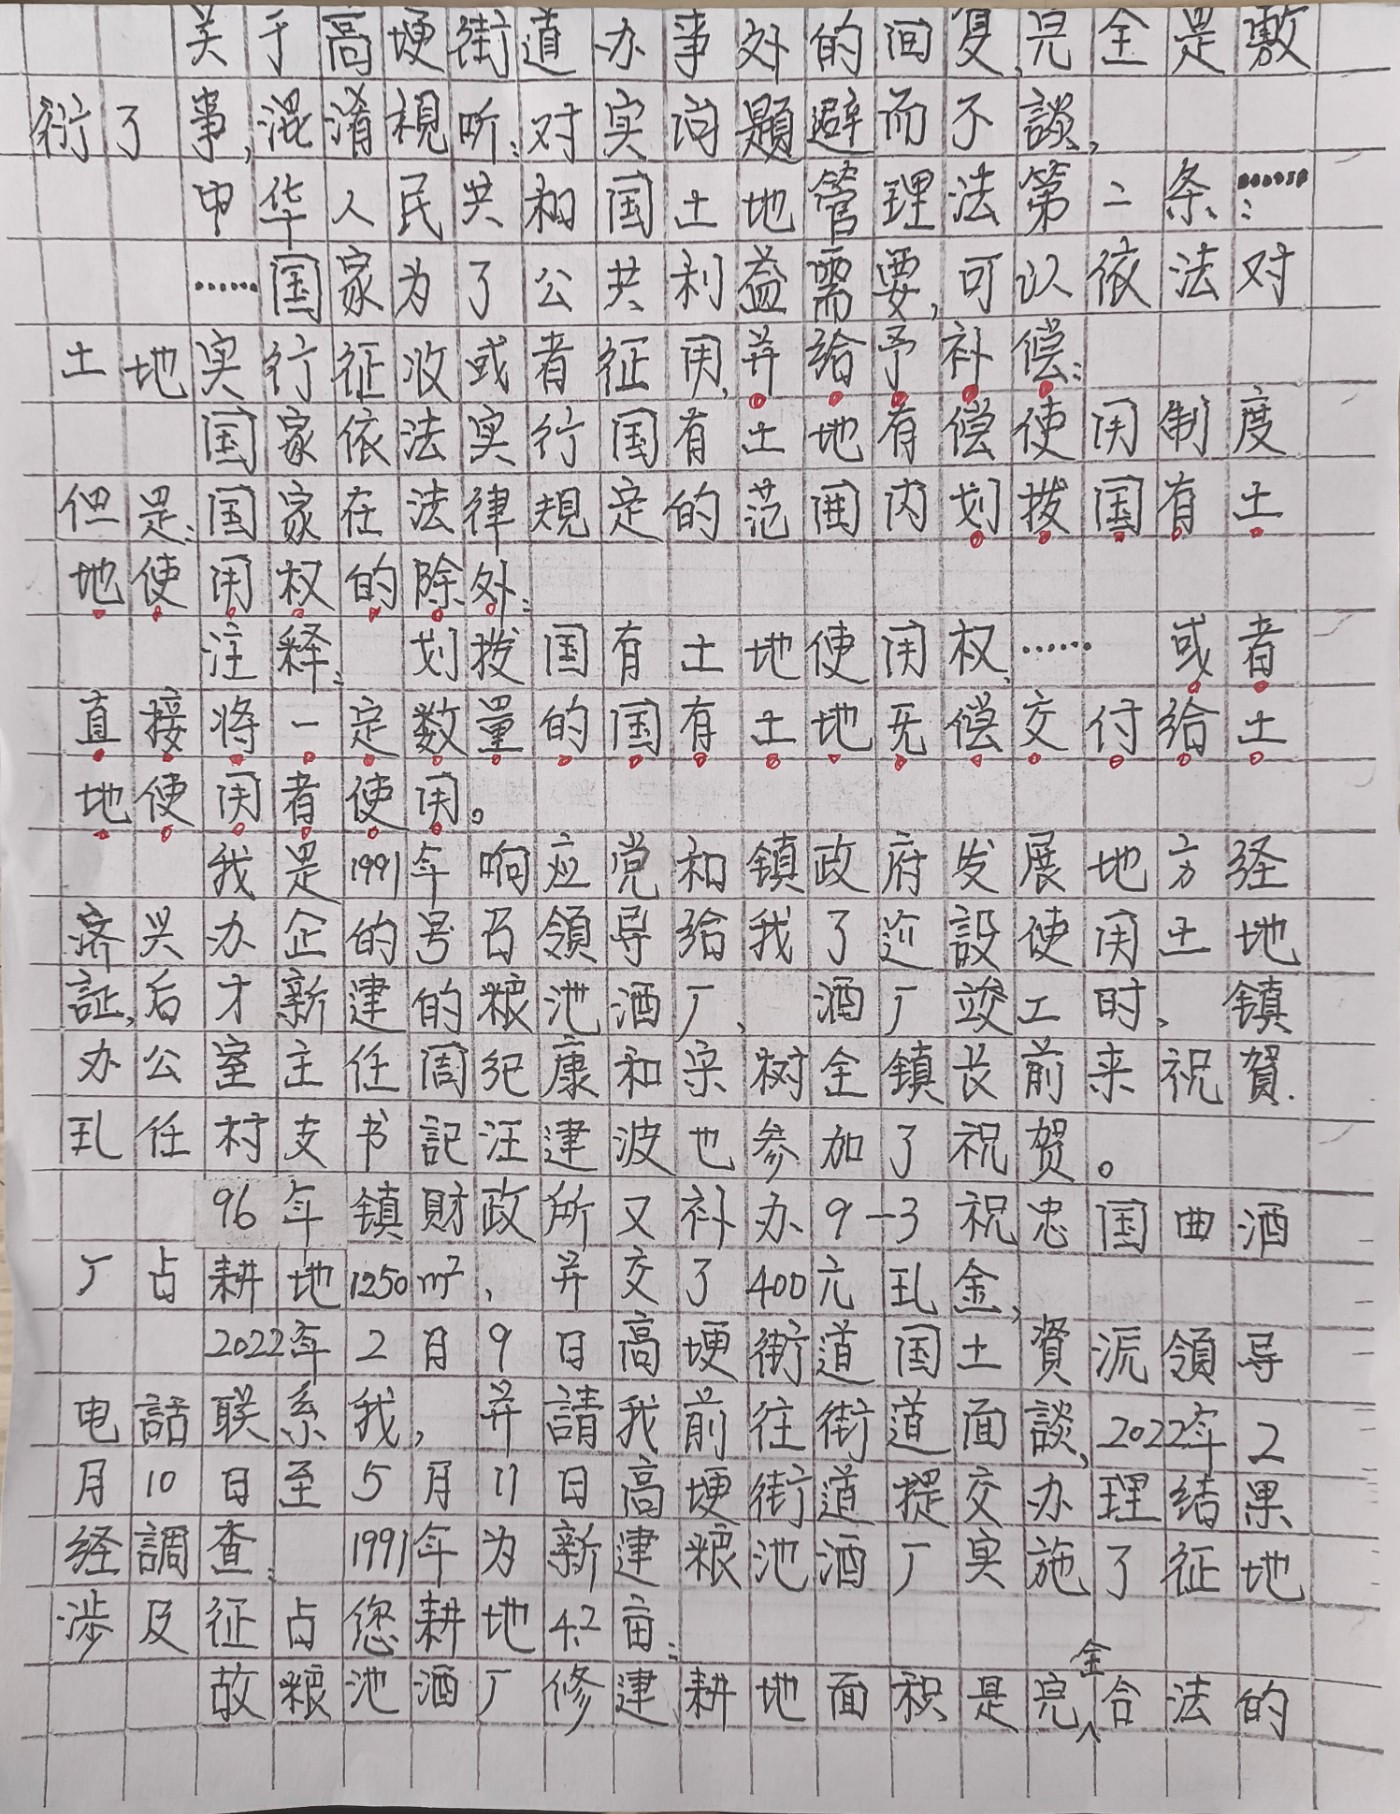 关于高埂街道办事处的回复,完全是敷
衍了事,混淆視听;对实询題避而不談,
中华人民共和国土地管理法第二条:……
……国家为了公共利益需要,可以依法对
土地实行征收或者征用,并给予补偿;
国家依法实行国有土地有偿使用制度
但是;国家在法律規定的范围内划拨国有土
地使用权的除外;
注释;划拨国有土地使用权,……或者
直接将一定数量的国有土地无偿交付给土
地使用者使用。
我是1991年响应党和镇政府发展地方经
济兴办企的号召領导给我了建設使用土地
証,后才新建的粮池酒厂、酒厂竣工时、镇
办公室主任周纪康和宋树全鎮长前来祝賀.
現任村支书記汪建波也参加了祝贺。
96年镇財政所又补办9-3祝忠国曲酒
厂占耕地1250m²,并交了400元現金,
2022年2月9日高埂街道国土資派領导
电話联系我,并請我前往街道面談,2022年2
月10日至5月11日高埂街道提交办理结果
经調查;1991年为新建粮池酒厂实施了征地
涉及征占您耕地4.2亩;
故粮池酒厂修建耕地面积是完全合法的